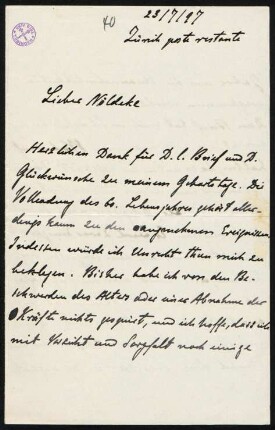 40
23/7/97
Zürich poste restante
Lieber Nöldeke
Herzlichen Dank für D. l. Brief und D.
Glückwünsche zu meinem Geburtstage. Die
Vollendung des 60. Lebensjahres gehört aller-
dings kaum zu den angenehmen Ereignissen
Indessen würde ich Unrecht thun mich zu
beklagen. Bisher habe ich von den Be-
schwerden des Alters oder einer Abnahme der
Kräfte nichts gespürt, und ich hoffe, dass ich
mit Vorsicht und Sorgfalt noch einige